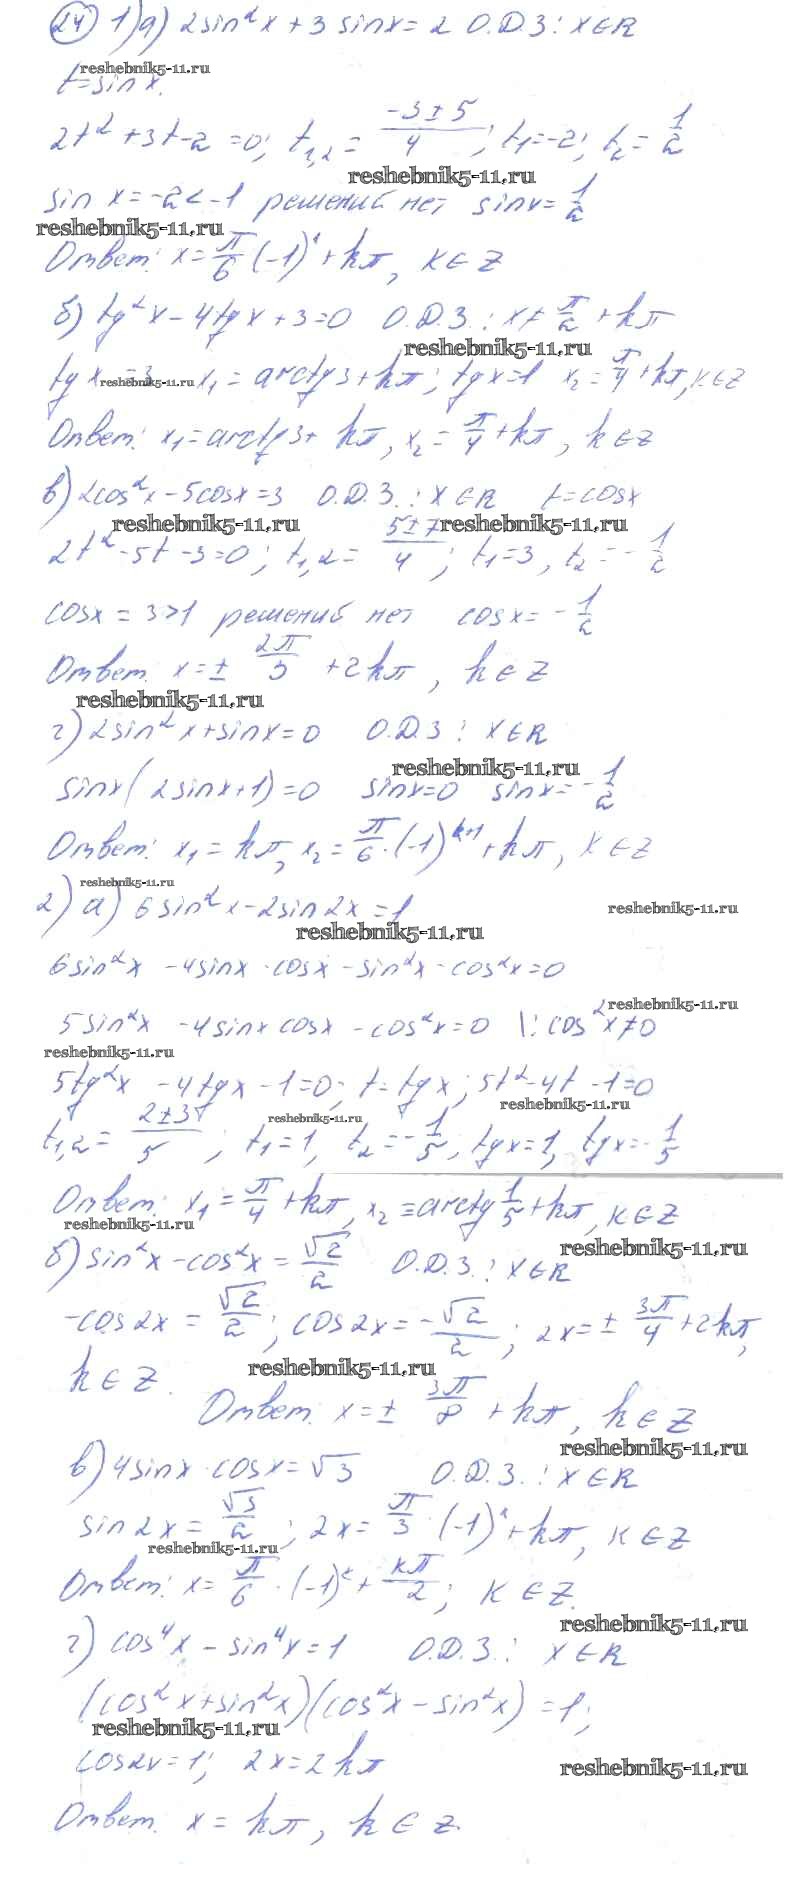 24 1) а) 2sin²x + 3 sinx = 2 О.Д.З: x∈R
reshebnik5-11.ru
t=sinx.
2t² + 3t - 2 = 0; t₁,₂ = (-3±5)/4; t₁=-2; t₂ = 1/2
reshebnik5-11.ru
sin x = -2 < -1 решений нет sinx = 1/2
reshebnik5-11.ru
Ответ: x = π/6 (-1)ᵏ + kπ, k∈Z
б) tg²x - 4tgx + 3 = 0 О.Д.З.: x ≠ π/2 + kπ
reshebnik5-11.ru
tgx = 3 x₁ = arctg3 + kπ; tgx=1 x₂ = π/4 + kπ, k∈Z
reshebnik5-11.ru
Ответ: x₁ = arctg3 + kπ, x₂ = π/4 + kπ, k∈Z
в) 2cos²x - 5cosx = 3 О.Д.З.: x∈R t=cosx
reshebnik5-11.ru reshebnik5-11.ru
2t² - 5t - 3 = 0; t₁,₂ = (5±7)/4; t₁=3, t₂ = -1/2
cosx = 3>1 решений нет cosx = -1/2
Ответ: x = ± 2π/3 + 2kπ, k∈Z
reshebnik5-11.ru
г) 2sin²x + sinx = 0 О.Д.З: x∈R
reshebnik5-11.ru
sinx(2sinx+1) = 0 sinx=0 sinx = -1/2
Ответ: x₁ = kπ, x₂ = π/6·(-1)ᵏ⁺¹ + kπ, k∈Z
reshebnik5-11.ru
2) а) 6sin²x - 2sin2x = 1
reshebnik5-11.ru
reshebnik5-11.ru
6sin²x - 4sinx·cosx - sin²x - cos²x = 0
reshebnik5-11.ru
5sin²x - 4sinx cosx - cos²x = 0 \: cos²x ≠ 0
reshebnik5-11.ru
5tg²x - 4tgx - 1 = 0; t=tgx; 5t² - 4t - 1 = 0
reshebnik5-11.ru
reshebnik5-11.ru
t₁,₂ = (2±3)/5; t₁=1, t₂ = -1/5; tgx=1, tgx = -1/5
Ответ: x₁ = π/4 + kπ, x₂ = arctg 1/5 + kπ, k∈Z
reshebnik5-11.ru
reshebnik5-11.ru
б) sin²x - cos²x = √2/2 О.Д.З.: x∈R
-cos2x = √2/2; cos2x = -√2/2; 2x = ± 3π/4 + 2kπ,
reshebnik5-11.ru
k∈Z.
Ответ: x = ± 3π/8 + kπ, k∈Z
reshebnik5-11.ru
в) 4sinx·cosx = √3 О.Д.З.: x∈R
sin2x = √3/2; 2x = π/3·(-1)ᵏ + kπ, k∈Z
reshebnik5-11.ru
Ответ: x = π/6·(-1)ᵏ + kπ/2; k∈Z.
reshebnik5-11.ru
г) cos⁴x - sin⁴x = 1 О.Д.З.: x∈R
(cos²x + sin²x)(cos²x - sin²x) = 1;
reshebnik5-11.ru
cos2x = 1; 2x = 2kπ
reshebnik5-11.ru
Ответ: x = kπ, k∈Z.